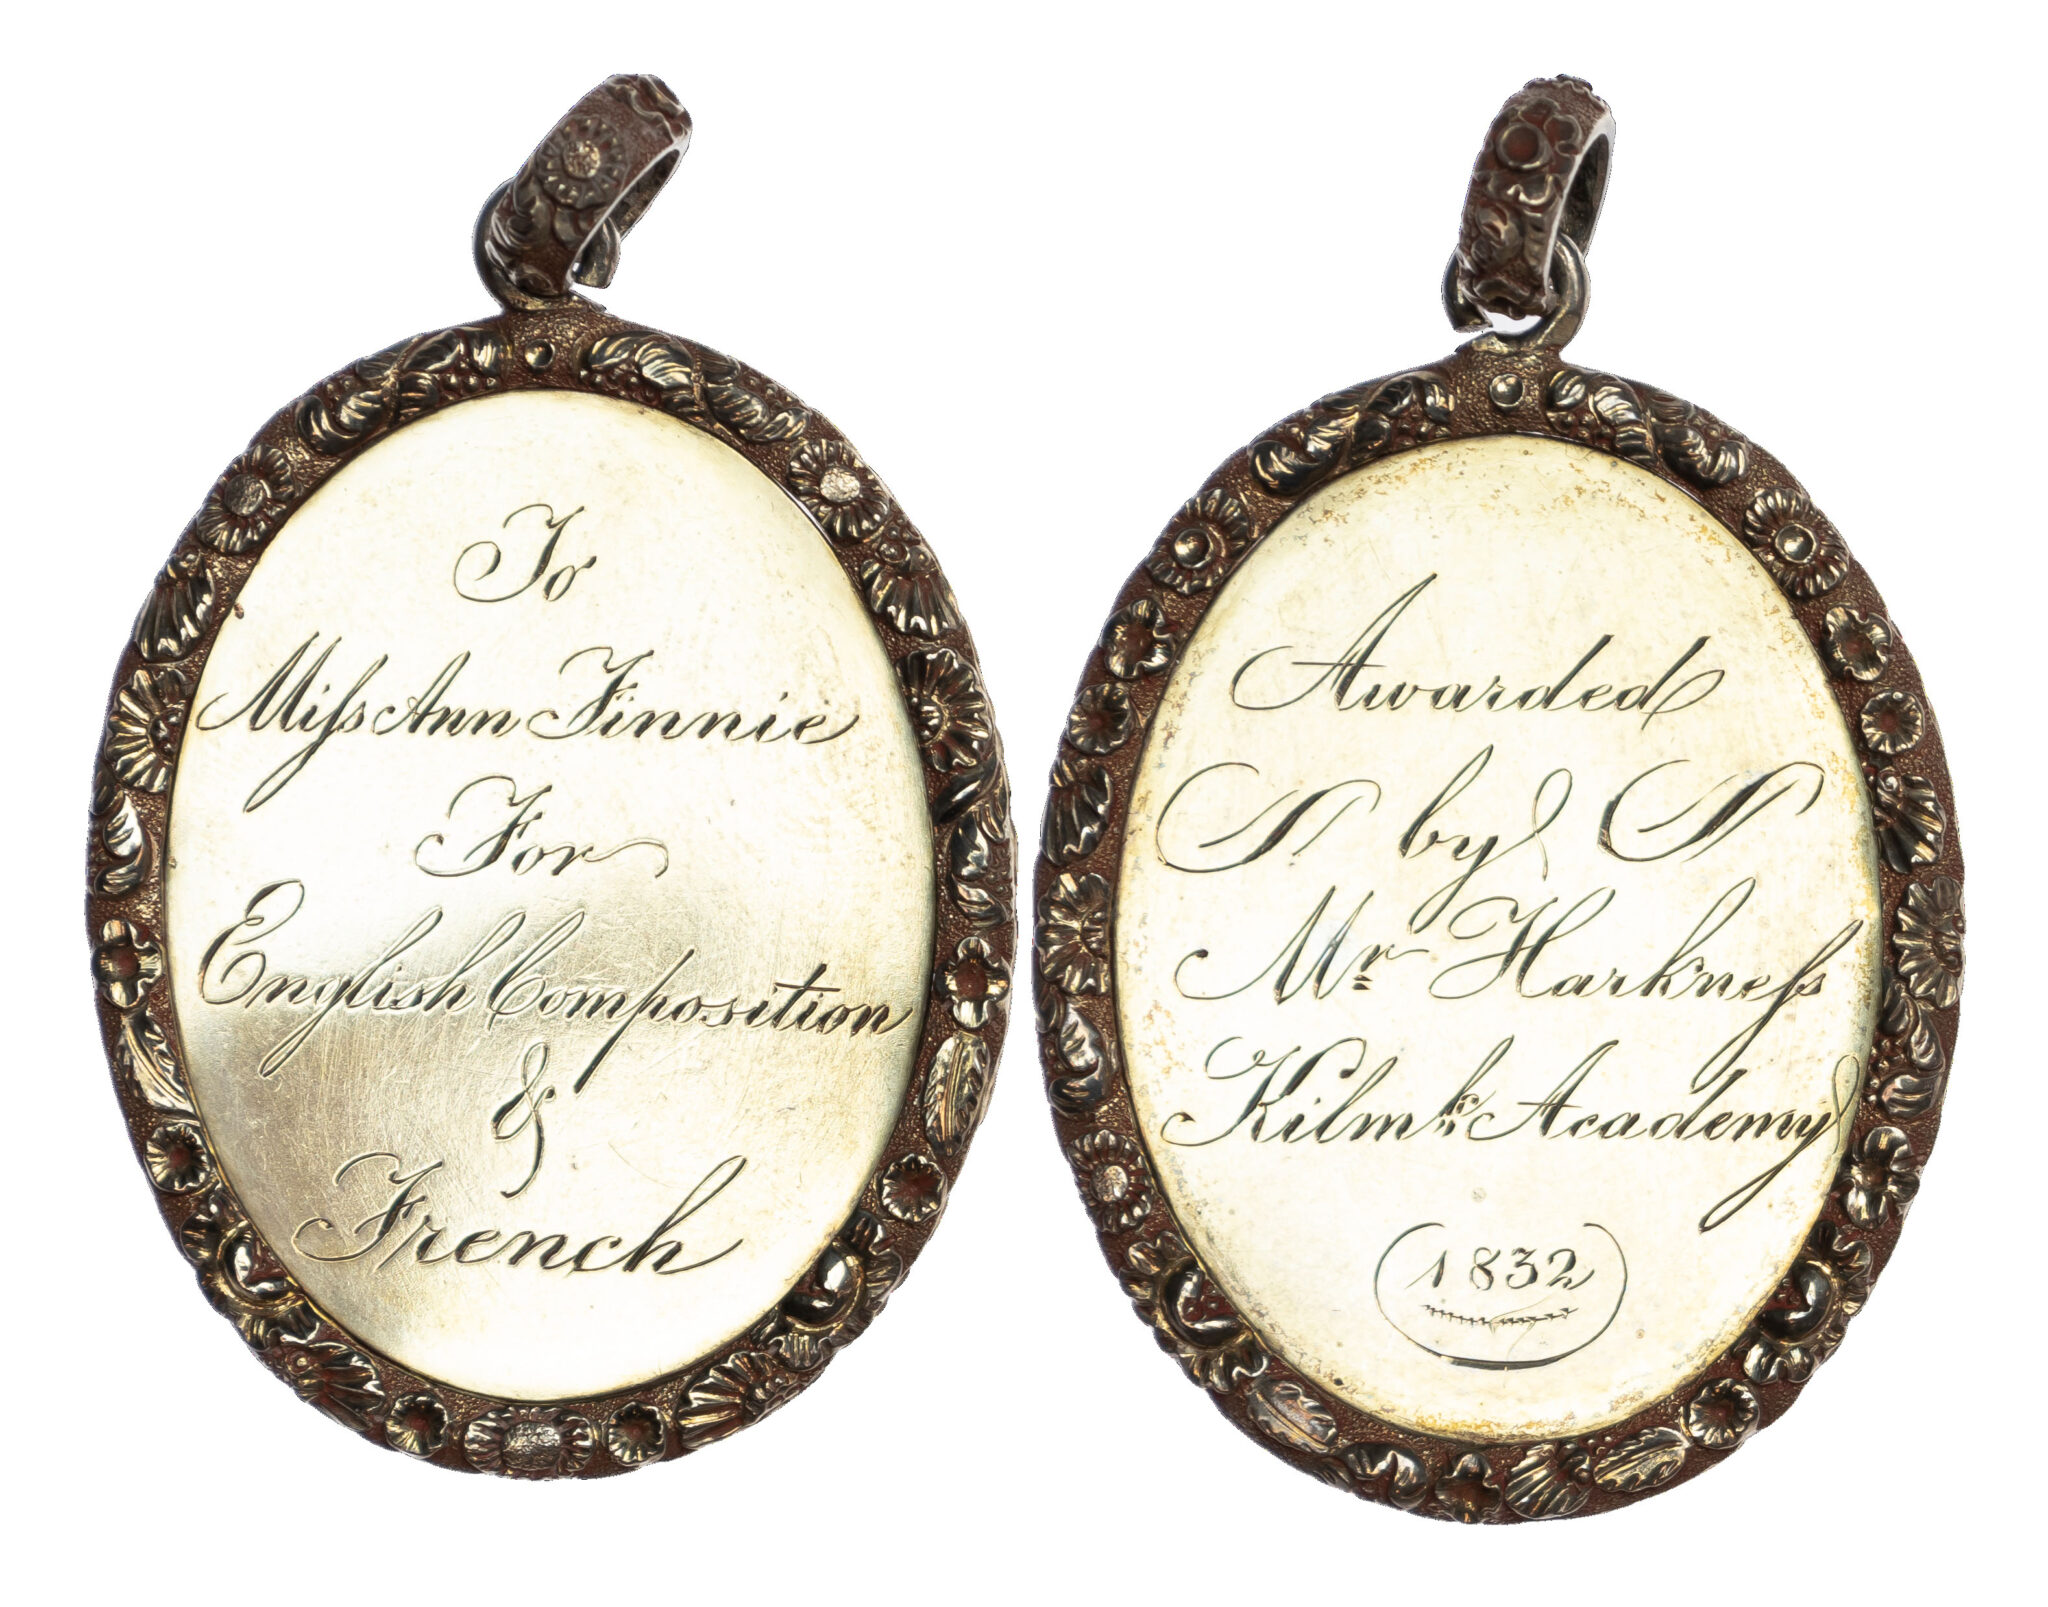 To
Miſs Ann Finnie
For
English Composition
&
French
Awarded
by
Mr Harkneſs
Kilmk. Academy
1832